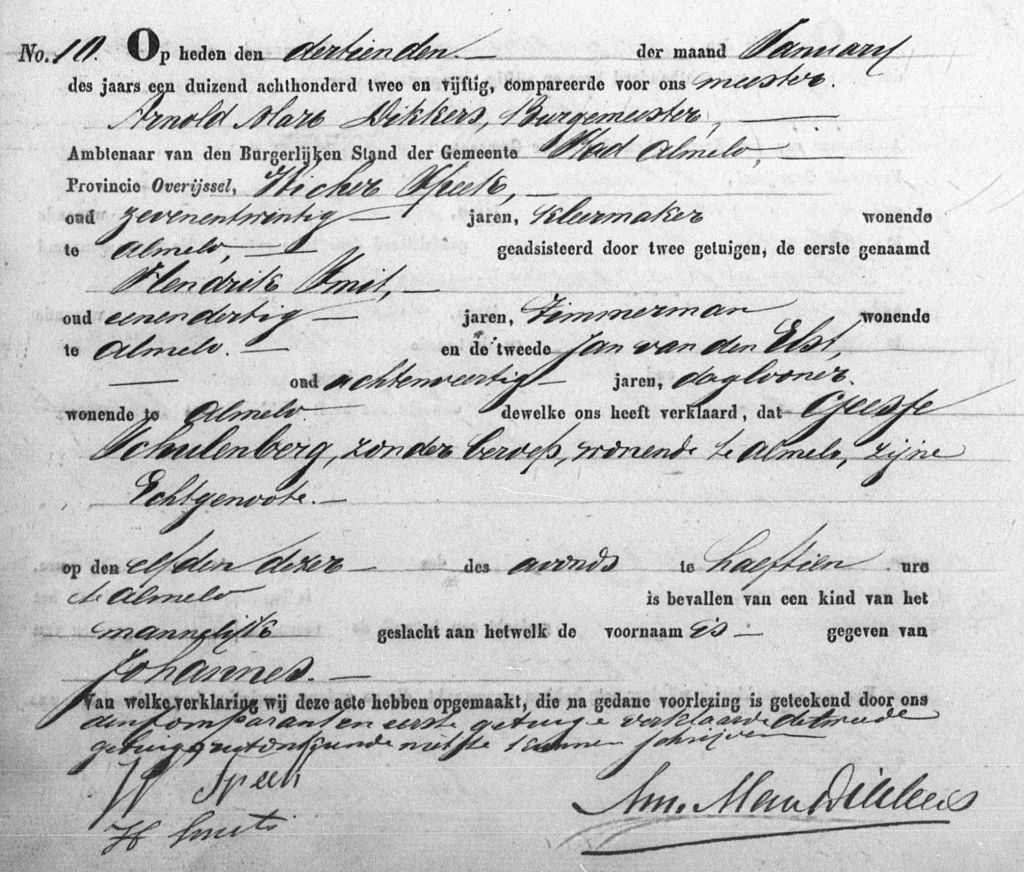 No. 10. Op heden den dertienden — der maand Januarij
des jaars een duizend achthonderd twee en vijftig, compareerde voor ons meester
Arnold Marc Dikkers, Burgemeester, —
Ambtenaar van den Burgerlijken Stand der Gemeente Stad Almelo, —
Provincie Overijssel, Wicher Speek, —
oud zevenentwintig — jaren, kleermaker wonende
te Almelo, — geadsisteerd door twee getuigen, de eerste genaamd
Hendrik Smit, —
oud eenendertig — jaren, Timmerman wonende
te Almelo. — en de tweede Jan van den Elst,
— oud achtenveertig — jaren, daglooner.
wonende te Almelo — dewelke ons heeft verklaard, dat Geesje
Schulenberg, zonder beroep, wonende te Almelo, zijne
Echtgenoote. —
op den elfden dezer — des avonds te half tien ure
te Almelo is bevallen van een kind van het
mannelijk geslacht aan hetwelk de voornaam is — gegeven van
Johannes. —
Van welke verklaring wij deze acte hebben opgemaakt, die na gedane voorlezing is geteekend door ons
den Comparant en eerste getuige verklaarde de tweede
getuige uit onkunde niet te kunnen schrijven
W Speek
H Smit
Arn. Marc Dikkers